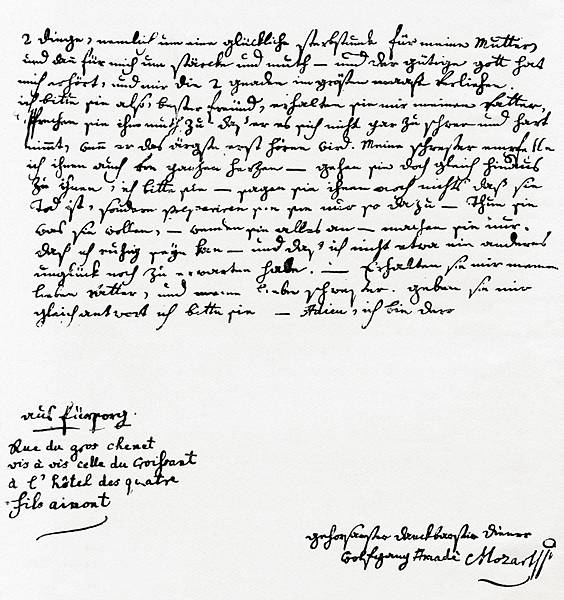 2 dinge, nemlich um eine glückliche sterbstunde für meine Mutter,
und dan für mich um stärcke und muth — und der gütige gott hat
mich erhört, und mir die 2 gnaden im grösten maaße verliehen.
ich bitte sie also, bester freünd, erhalten sie mir meinen vatter,
sprechen sie ihm muth zu daß er es sich nicht gar zu schwer und hart
nimmt, wenn er das ärgste erst hören wird. Meine schwester empfehle
ich ihnen auch von ganzen herzen — gehen sie doch gleich hinaus
zu ihnen, ich bitte sie — sagen sie ihnen noch nichts daß sie
Tod ist, sondern prepariren sie sie nur so dazu — Thun sie
was sie wollen, — wenden sie alles an — machen sie nur
daß ich ruhig seyn kan — und daß ich nicht etwa ein anderes
unglück noch zu erwarten habe. — Erhalten sie mir meinen
lieben vatter, und meine liebe schwester. geben sie mir
gleich antwort ich bitte sie — Adieu, ich bin dero
aus fürsorg.
Rue du gros chenet
vis à vis celle du Croissant
à l'hôtel des quatre
fils aimont
gehorsamster danckbarster diener
Wolfgang Amadè Mozart